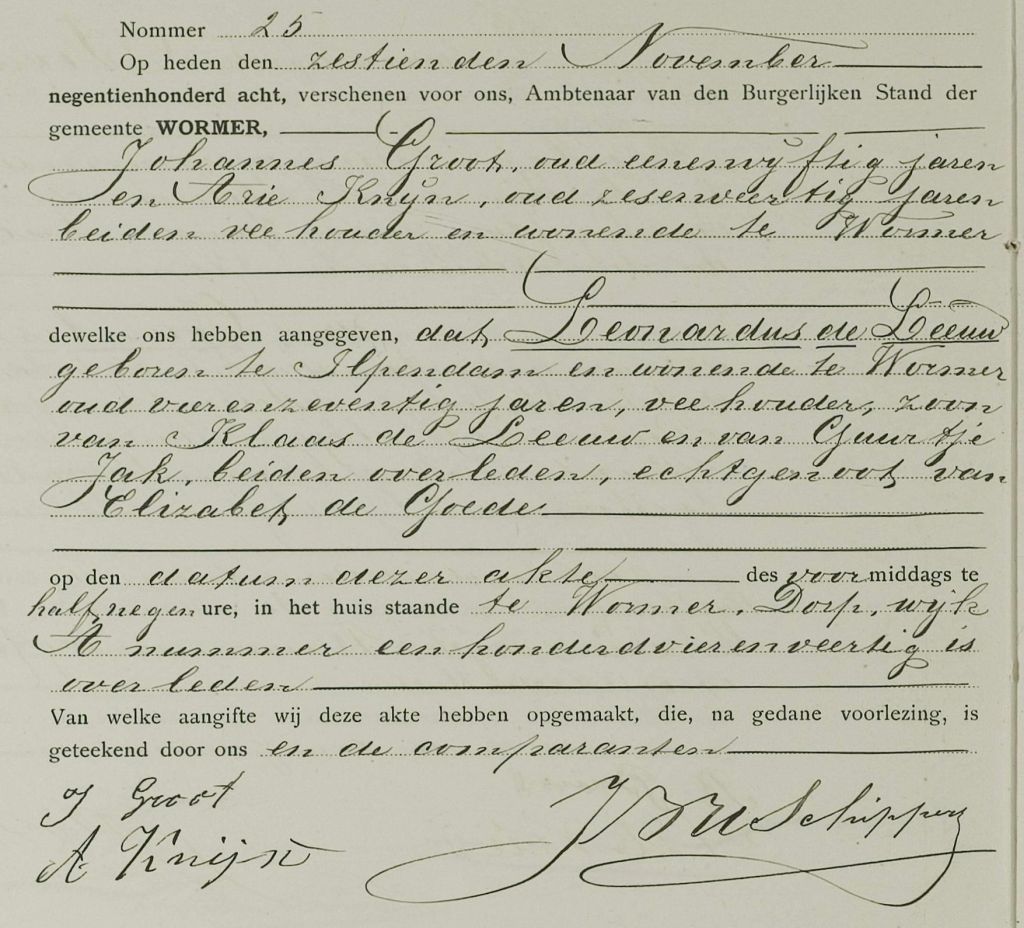 Nommer 25
Op heden den zestienden November
negentienhonderd acht, verschenen voor ons, Ambtenaar van den Burgerlijken Stand der
gemeente WORMER,
Johannes Groot, oud eenenvijftig jaren
en Arie Knijn, oud zesenveertig jaren
beiden veehouder en wonende te Wormer
dewelke ons hebben aangegeven, dat Leonardus de Leeuw
geboren te Ilpendam en wonende te Wormer
oud vierenzeventig jaren, veehouder, zoon
van Klaas de Leeuw en van Guurtje
Jak, beiden overleden, echtgenoot van
Elizabet de Goede
op den datum dezer akte des voormiddags te
half negen ure, in het huis staande te Wormer, Dorp, wijk
A nummer eenhonderdvierenveertig is
overleden
Van welke aangifte wij deze akte hebben opgemaakt, die, na gedane voorlezing, is
geteekend door ons en de comparanten
J Groot
A Knijn
Schipper